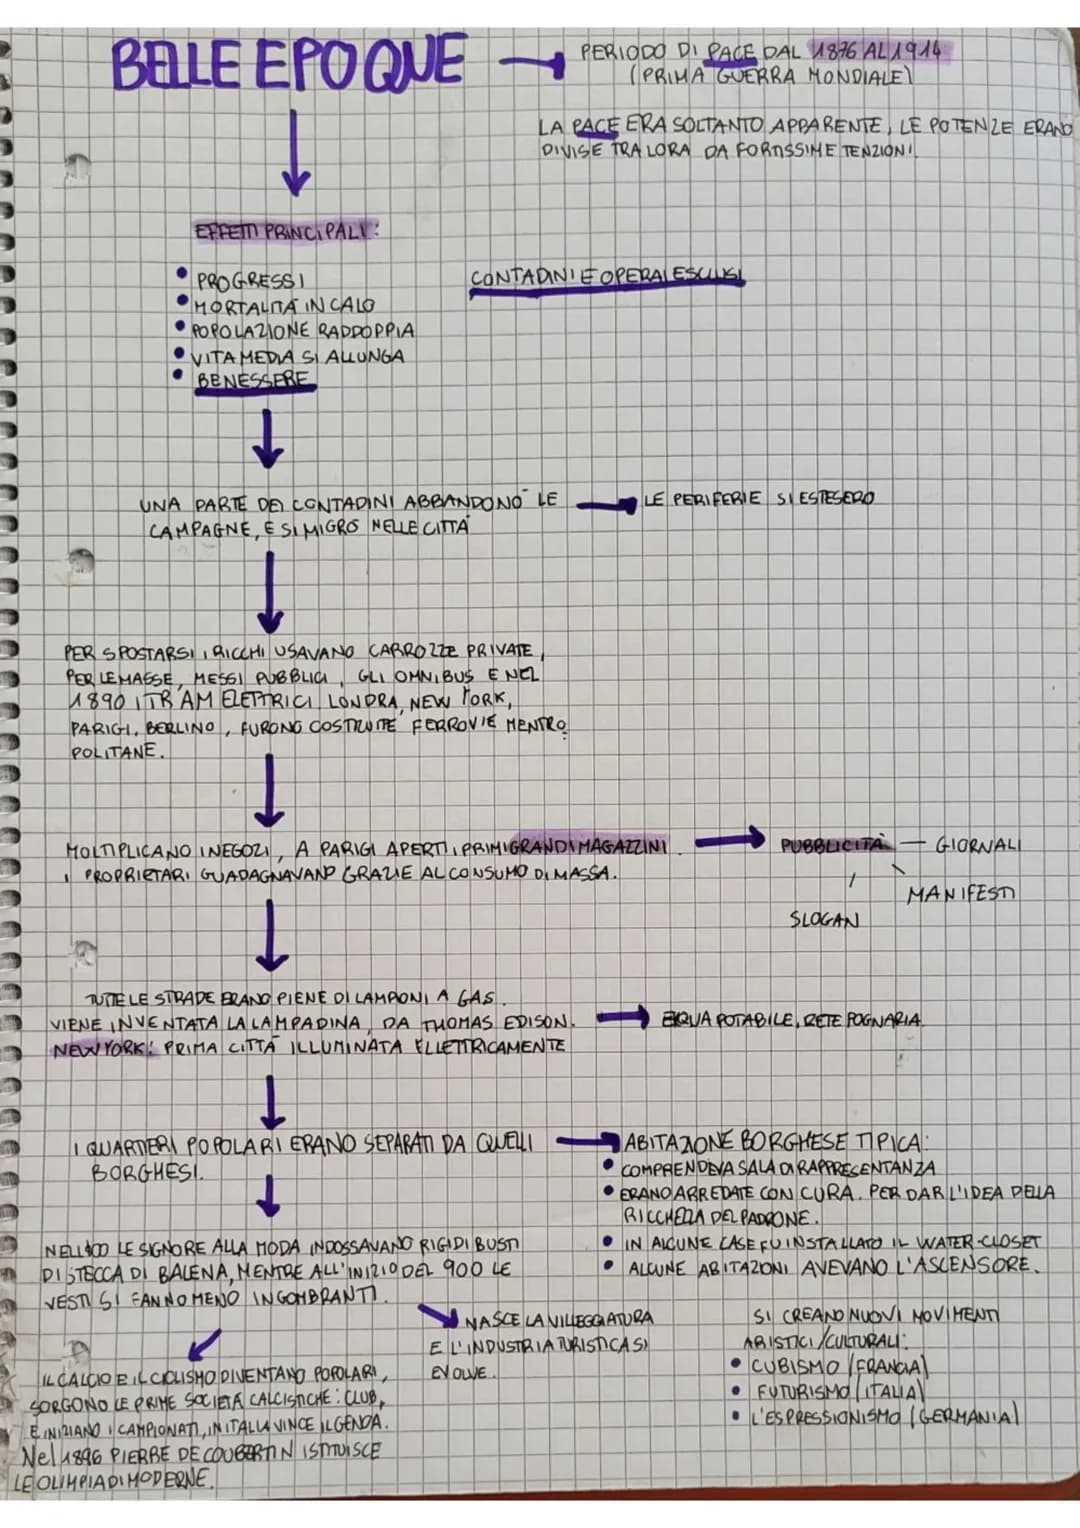 BELLE EPOQUE
PERIODO DI PACE DAL 1876 AL 1914
(PRIMA GUERRA MONDIALE)
LA PACE ERA SOLTANTO APPARENTE, LE POTENZE ERANO
DIVISE TRA LORA DA FORTISSIME TENZIONI.
EFFETTI PRINCIPALI:
• PROGRESSI
• MORTALITÀ IN CALO
• POPOLAZIONE RADDOPPIA
• VITA MEDIA SI ALLUNGA
• BENESSERE
CONTADINI E OPERAI ESCLUSI
UNA PARTE DEI CONTADINI ABBANDONÒ LE
CAMPAGNE, E SI MIGRÒ NELLE CITTÀ
LE PERIFERIE SI ESTESERO
PER SPOSTARSI I RICCHI USAVANO CARROZZE PRIVATE,
PER LE MASSE, MESSI PUBBLICI, GLI OMNIBUS E NEL
1890 I TRAM ELETTRICI LONDRA, NEW YORK,
PARIGI, BERLINO, FURONO COSTRUITE FERROVIE MENTRO
POLITANE.
MOLTIPLICANO I NEGOZI, A PARIGI APERTI I PRIMI GRANDI MAGAZZINI
I PROPRIETARI GUADAGNAVANO GRAZIE AL CONSUMO DI MASSA.
PUBBLICITÀ — GIORNALI
MANIFESTI
SLOGAN
TUTTE LE STRADE ERANO PIENE DI LAMPIONI A GAS.
VIENE INVENTATA LA LAMPADINA, DA THOMAS EDISON.
NEW YORK: PRIMA CITTÀ ILLUMINATA ELLETTRICAMENTE
POTABILE, RETE FOGNARIA.
I QUARTIERI POPOLARI ERANO SEPARATI DA QUELLI
BORGHESI.
ABITAZIONE BORGHESE TIPICA:
• COMPRENDEVA SALA DI RAPPRESENTANZA
• ERANO ARREDATE CON CURA. PER DAR L'IDEA DELLA
RICCHEZZA DEL PADRONE.
• IN ALCUNE CASE FU INSTALLATO IL WATER-CLOSET
• ALCUNE ABITAZIONI AVEVANO L'ASCENSORE.
NELL'400 LE SIGNORE ALLA MODA INDOSSAVANO RIGIDI BUSTI
DI STECCA DI BALENA, MENTRE ALL'INIZIO DEL 900 LE
VESTI SI FANNO MENO INGOMBRANTI.
NASCE LA VILLEGGIATURA
E L'INDUSTRIA TURISTICA SI
EVOLVE.
SI CREANO NUOVI MOVIMENTI
ARISTICI/CULTURALI:
• CUBISMO (FRANCIA)
• FUTURISMO (ITALIA)
• L'ESPRESSIONISMO (GERMANIA)
IL CALCIO E IL CICLISMO DIVENTANO POPOLARI,
SORGONO LE PRIME SOCIETÀ CALCISTICHE: CLUB,
E INIZIANO I CAMPIONATI, IN ITALIA VINCE IL GENOA.
Nel 1896 PIERRE DE COUBERTIN ISTITUISCE
LE OLIMPIADI MODERNE.